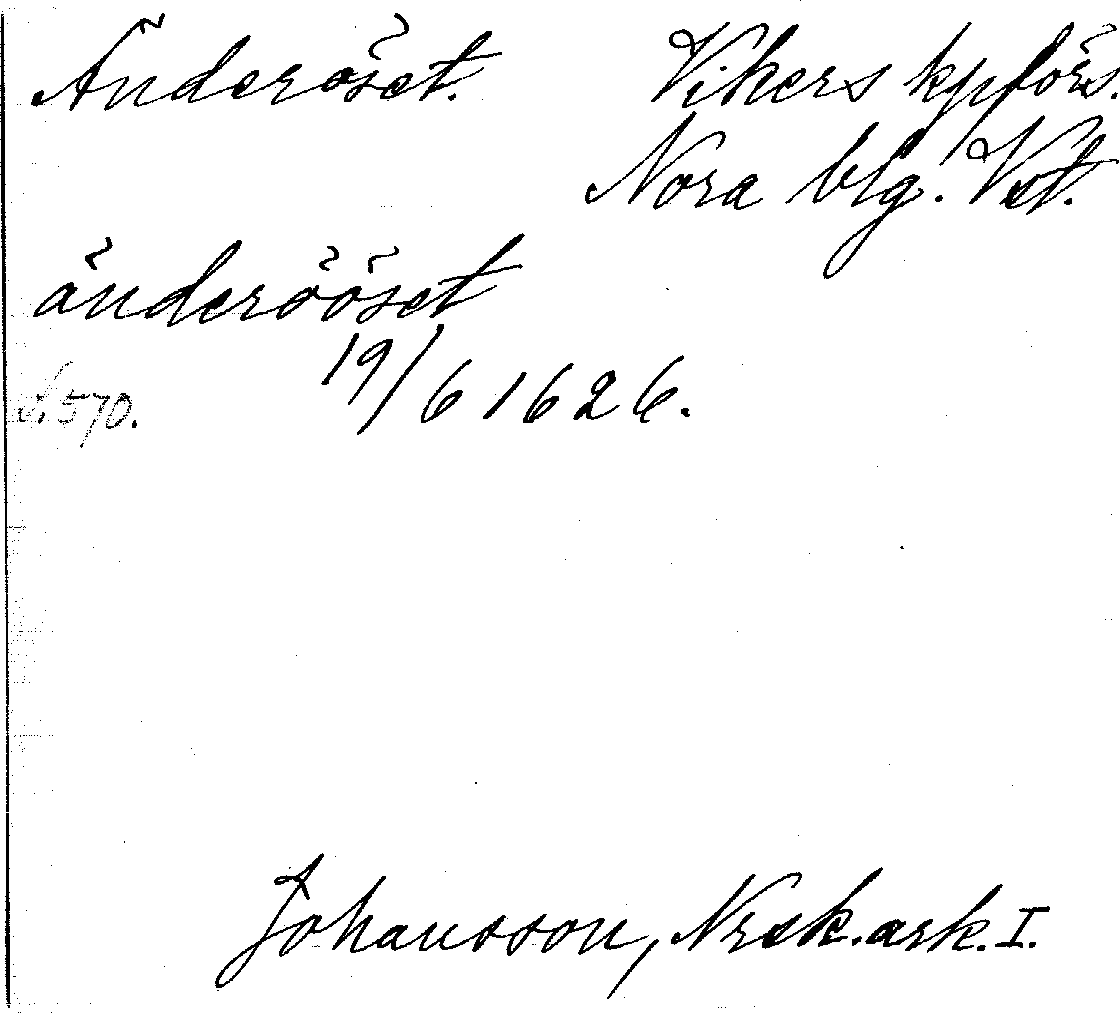 Änderöset. Vikers kpförs.
Nora blg. Vst.
änderööset
19/6 1626.
S. 570.
Johansson, Norsk. ark. I.